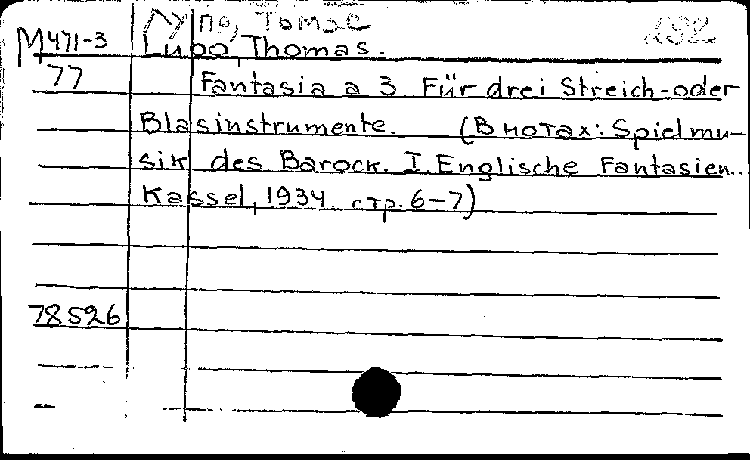 Лупо, Томас 192
М471-3 Lupo, Thomas.
77 Fantasia a 3 Für drei Streich-oder
Blasinstrumente. (В нотах: Spielmu-
sik des Barock. I. Englische Fantasien..
Kassel, 1934 стр. 6-7)
78526